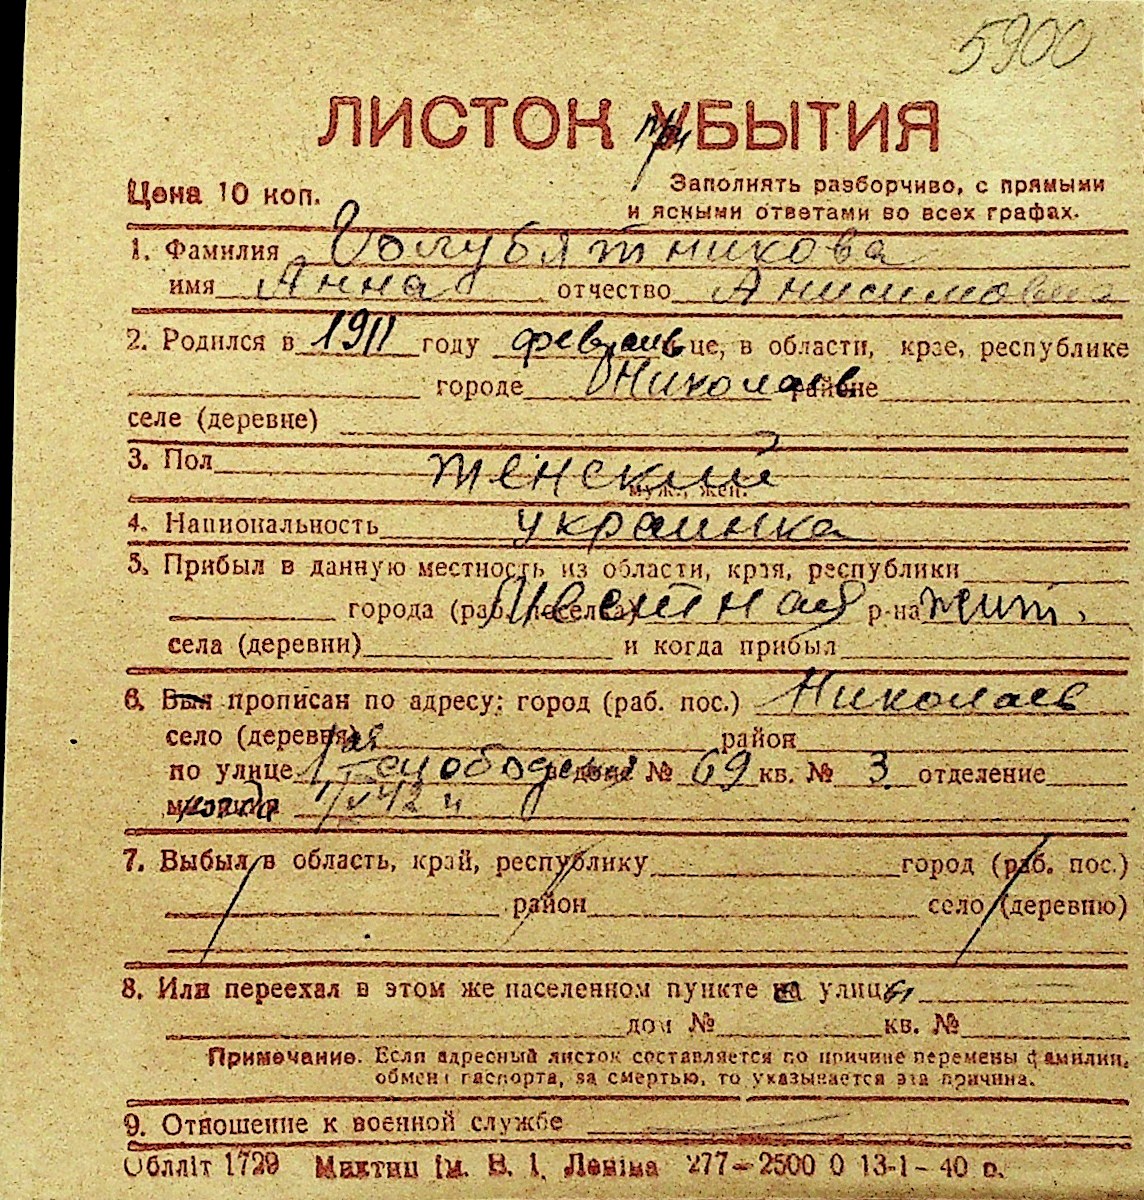 5900
ЛИСТОК при УБЫТИЯ
Цена 10 коп.
Заполнять разборчиво, с прямыми
и ясными ответами во всех графах.
1. Фамилия Голубятникова
имя Анна отчество Анисимовна
2. Родился в 1911 году феврале це, в области, крае, республике
городе Николаев районе
селе (деревне)
3. Пол женский
муж., жен.
4. Национальность украинка
5. Прибыл в данную местность из области, края, республики
города (раб. поселка) р-на жит.
села (деревни) и когда прибыл
6. Был прописан по адресу: город (раб. пос.) Николаев
село (деревня) район
по улице 1ая Слободская в доме № 69 кв. № 3 отделение
милиции
7. Выбыл в область, край, республику город (раб. пос.)
район село (деревню)
8. Или переехал в этом же населенном пункте на улицу
дом № кв. №
Примечание. Если адресный листок составляется по причине перемены фамилии,
обмена паспорта, за смертью, то указывается эта причина.
9. Отношение к военной службе
Облліт 1729 Миктип ім. В. І. Леніна 277—2500 0 13-1-40 р.